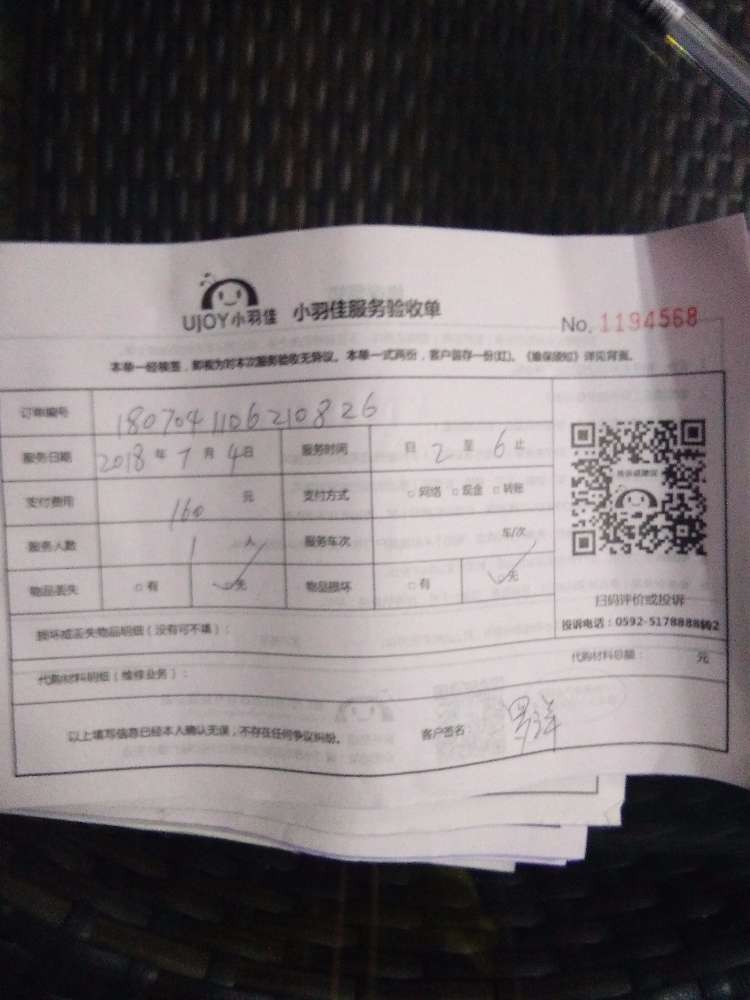 UJOY小羽佳 小羽佳服务验收单
No. 1194568
本单一经签签，即视为对本次服务验收无异议。本单一式两份，客户留存一份(红)。《维保须知》详见背面。
订单编号 1807041106210826
服务日期 2018年7月4日 服务时间 自2至6止
支付费用 160元 支付方式 □网络 □现金 □转账
服务人数 1人 服务车次 车/次
物品丢失 □有 ✓无 物品损坏 □有 ✓无
扫码评价或投诉
投诉电话：0592-5178888转2
损坏或丢失物品明细（没有可不填）：
代购材料明细（维修业务）： 代购材料总额： 元
以上填写信息已经本人确认无误，不存在任何争议纠纷。 客户签名：